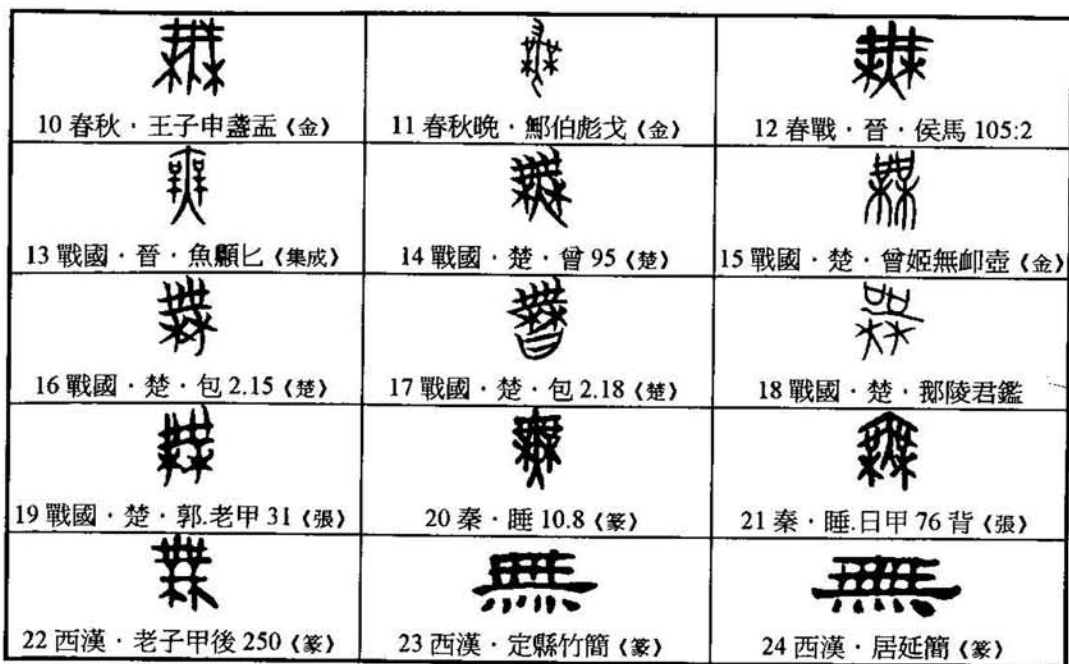 10 春秋・王子申盞盂《金》
11 春秋晚・鄦伯彪戈《金》
12 春戰・晉・侯馬 105:2
13 戰國・晉・魚顯匕《集成》
14 戰國・楚・曾 95《楚》
15 戰國・楚・曾姬無卹壺《金》
16 戰國・楚・包 2.15《楚》
17 戰國・楚・包 2.18《楚》
18 戰國・楚・鄀陵君鑑
19 戰國・楚・郭.老甲 31《張》
20 秦・睡 10.8《篆》
21 秦・睡.日甲 76 背《張》
無
無
22 西漢・老子甲後 250《篆》
23 西漢・定縣竹簡《篆》
24 西漢・居延簡《篆》